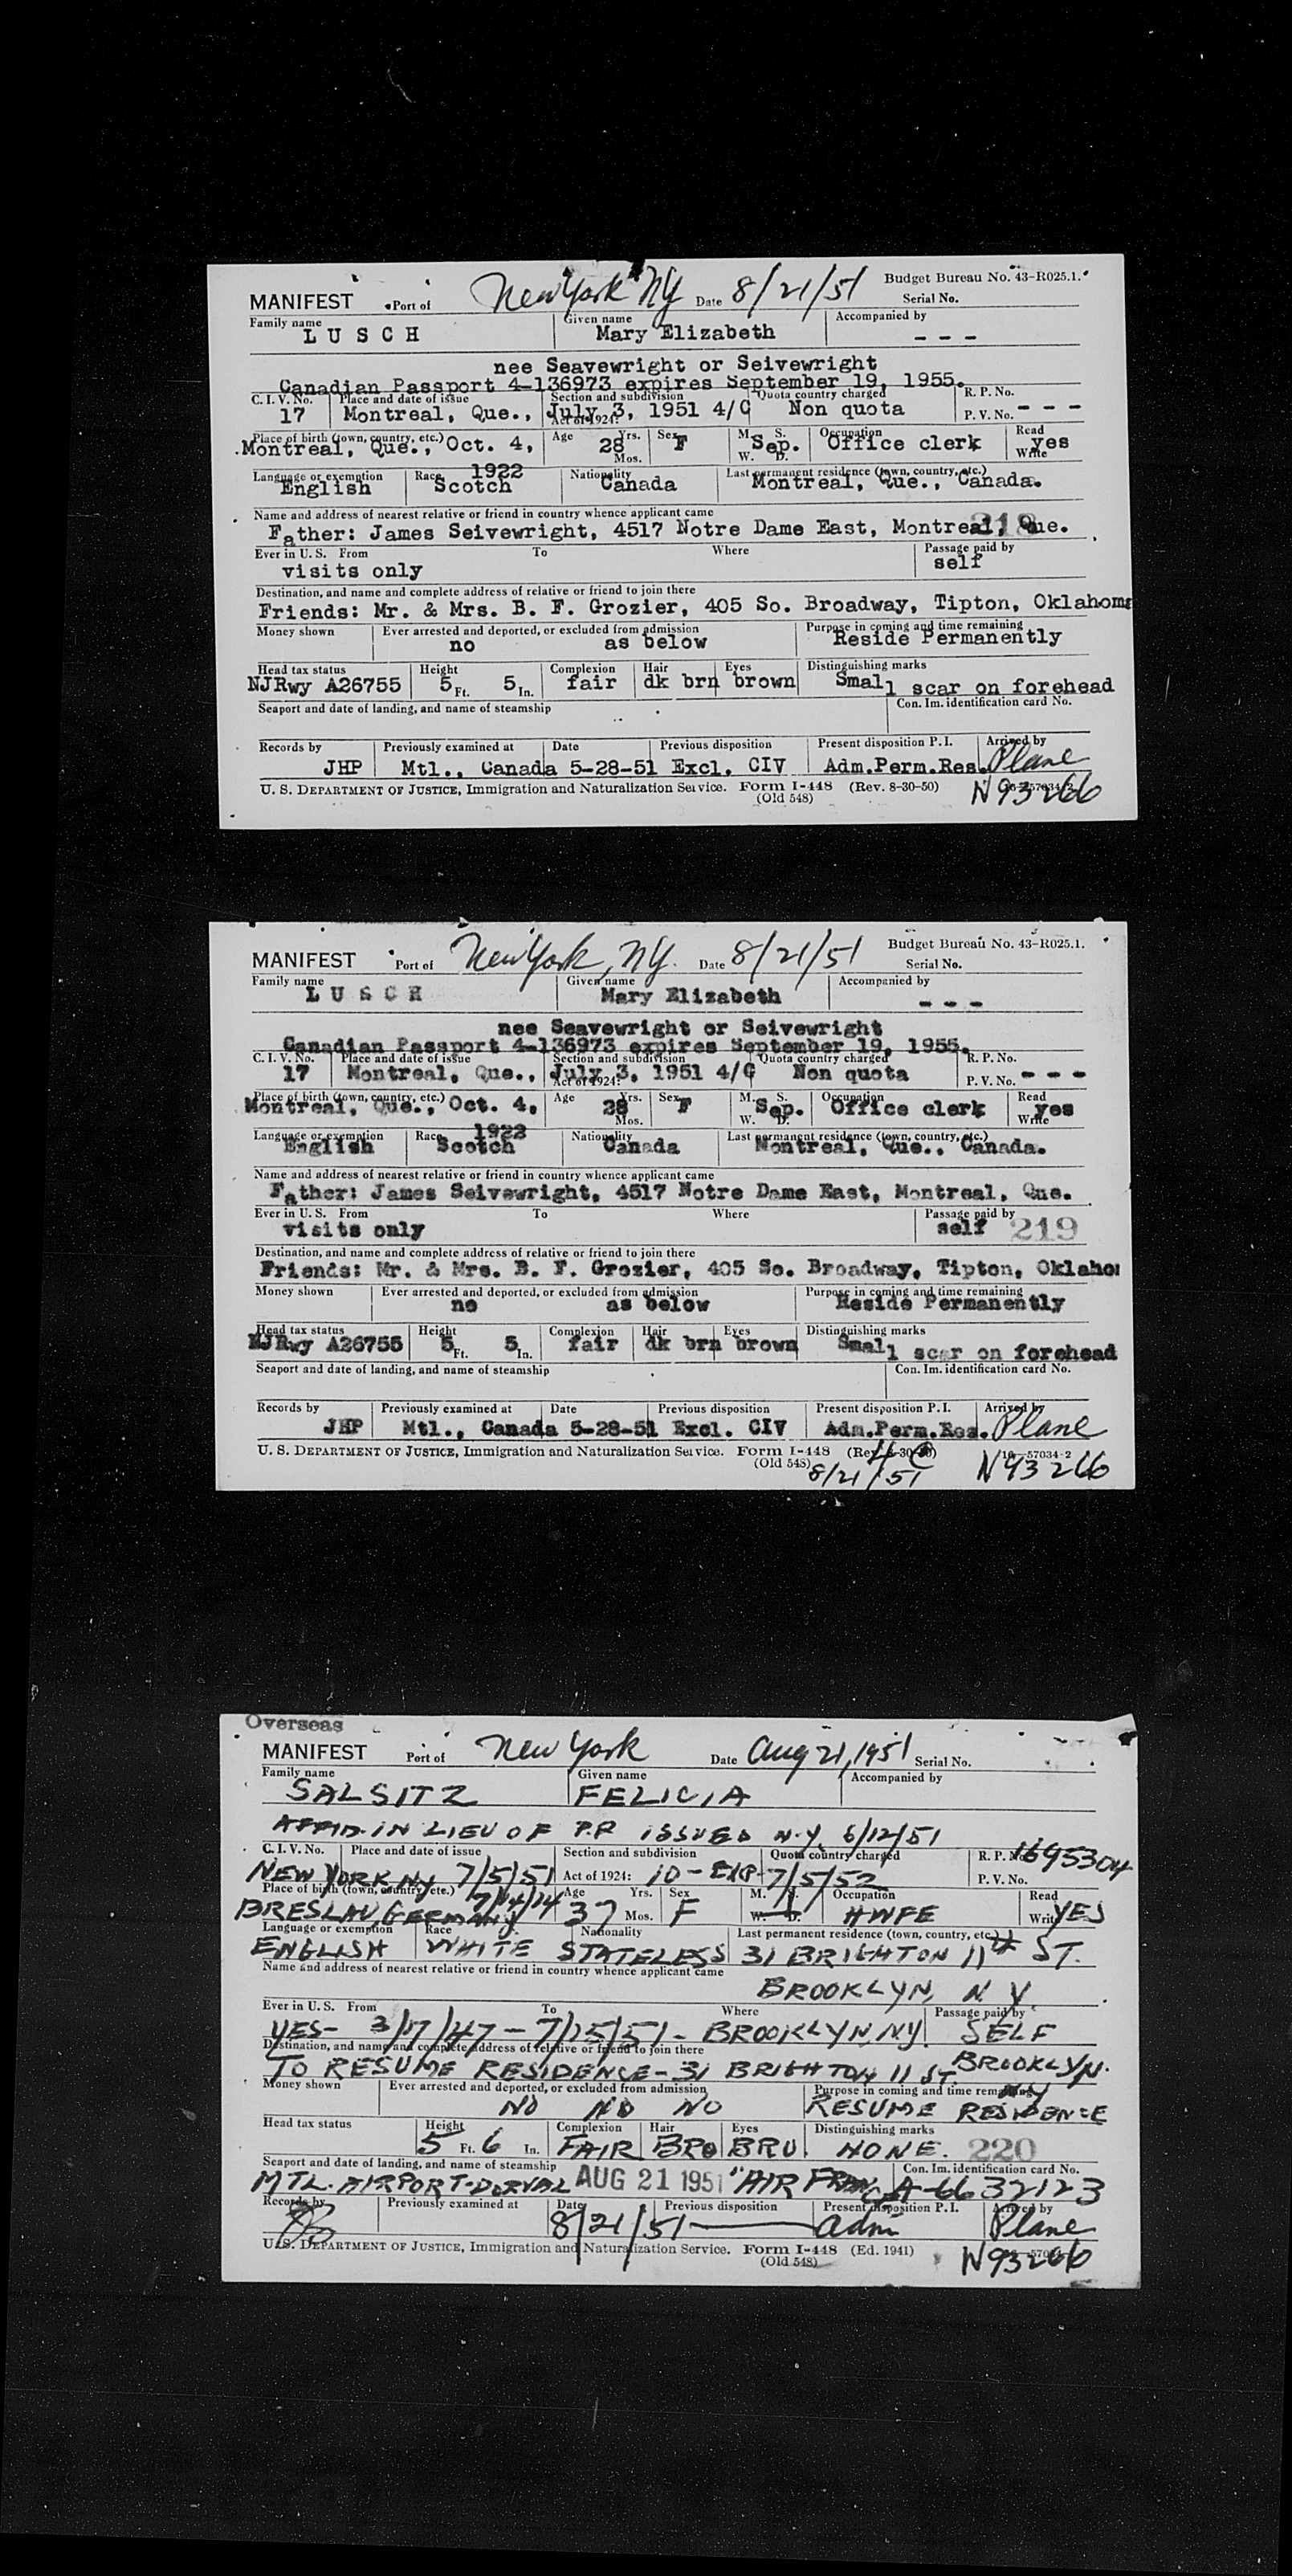 Budget Bureau No. 43-R025.1.
MANIFEST Port of New York NY Date 8/21/51 Serial No.
Family name Given name Accompanied by
LUSCH Mary Elizabeth - - -
nee Seavewright or Seivewright
Canadian Passport 4-136973 expires September 19, 1955.
C. I. V. No. Place and date of issue Section and subdivision Quota country charged R. P. No.
17 Montreal, Que., July 3, 1951 4/C Non quota - - -
Act of 1924: P. V. No.
Place of birth (town, country, etc.) Age Yrs. Sex M. S. Occupation Read
Montreal, Que., Oct. 4, 28 F Sep. Office clerk yes
Mos. W. D. Write
1922
Language or exemption Race Nationality Last permanent residence (town, country, etc.)
English Scotch Canada Montreal, Que., Canada.
Name and address of nearest relative or friend in country whence applicant came
218
Father: James Seivewright, 4517 Notre Dame East, Montreal, Que.
Ever in U. S. From To Where Passage paid by
visits only self
Destination, and name and complete address of relative or friend to join there
Friends: Mr. & Mrs. B. F. Grozier, 405 So. Broadway, Tipton, Oklahoma
Money shown Ever arrested and deported, or excluded from admission Purpose in coming and time remaining
no as below Reside Permanently
Head tax status Height Complexion Hair Eyes Distinguishing marks
NJRwy A26755 5 Ft. 5 In. fair dk brn brown Small scar on forehead
Seaport and date of landing, and name of steamship Con. Im. identification card No.
Records by Previously examined at Date Previous disposition Present disposition P. I. Arrived by
JHP Mtl., Canada 5-28-51 Excl. CIV Adm.Perm.Res. Plane
U. S. DEPARTMENT OF JUSTICE, Immigration and Naturalization Service. Form I-448 (Rev. 8-30-50) N93266
(Old 548)
Budget Bureau No. 43-R025.1.
MANIFEST Port of New York, NY. Date 8/21/51 Serial No.
Family name Given name Accompanied by
LUSCH Mary Elizabeth - - -
nee Seavewright or Seivewright
Canadian Passport 4-136973 expires September 19, 1955.
C. I. V. No. Place and date of issue Section and subdivision Quota country charged R. P. No.
17 Montreal, Que., July 3, 1951 4/C Non quota - - -
Act of 1924: P. V. No.
Place of birth (town, country, etc.) Age Yrs. Sex M. S. Occupation Read
Montreal, Que., Oct. 4, 28 F Sep. Office clerk yes
Mos. W. D. Write
1922
Language or exemption Race Nationality Last permanent residence (town, country, etc.)
English Scotch Canada Montreal, Que., Canada.
Name and address of nearest relative or friend in country whence applicant came
Father: James Seivewright, 4517 Notre Dame East, Montreal, Que.
Ever in U. S. From To Where Passage paid by
visits only self 219
Destination, and name and complete address of relative or friend to join there
Friends: Mr. & Mrs. B. F. Grozier, 405 So. Broadway, Tipton, Oklaho
Money shown Ever arrested and deported, or excluded from admission Purpose in coming and time remaining
no as below Reside Permanently
Head tax status Height Complexion Hair Eyes Distinguishing marks
NJRwy A26755 5 Ft. 5 In. fair dk brn brown Small scar on forehead
Seaport and date of landing, and name of steamship Con. Im. identification card No.
Records by Previously examined at Date Previous disposition Present disposition P. I. Arrived by
JHP Mtl., Canada 5-28-51 Excl. CIV Adm.Perm.Res. Plane
U. S. DEPARTMENT OF JUSTICE, Immigration and Naturalization Service. Form I-448 (Rev. 8-30-50) 16-57034-2
(Old 548) 8/21/51 N93266
Overseas
MANIFEST Port of New York Date Aug 21, 1951 Serial No.
Family name Given name Accompanied by
SALSITZ FELICIA
AFFID. IN LIEU OF P.P ISSUED N.Y. 6/12/51
C. I. V. No. Place and date of issue Section and subdivision Quota country charged R. P. No. 1695304
NEW YORK NY 7/5/51 Act of 1924: 10 - EXP-7/5/52 P. V. No.
Place of birth (town, country, etc.) Age Yrs. Sex M. S. Occupation Read
BRESLAU GERMANY 37 Mos. F W. D. HWFE Write YES
Language or exemption Race Nationality Last permanent residence (town, country, etc.)
ENGLISH WHITE STATELESS 31 BRIGHTON 11th ST.
Name and address of nearest relative or friend in country whence applicant came
BROOKLYN, N Y
Ever in U. S. From To Where Passage paid by
YES- 3/17/47 - 7/25/51 - BROOKLYN, NY. SELF
Destination, and name and complete address of relative or friend to join there
TO RESUME RESIDENCE - 31 BRIGHTON 11 ST. BROOKLYN. NY
Money shown Ever arrested and deported, or excluded from admission Purpose in coming and time remaining
NO NO NO RESUME RESIDENCE
Head tax status Height Complexion Hair Eyes Distinguishing marks
5 Ft. 6 In. FAIR BRO BRU. NONE. 220
Seaport and date of landing, and name of steamship Con. Im. identification card No.
MTL. AIRPORT-DORVAL AUG 21 1951 "AIR FRANCE A-6632123
Records by Previously examined at Date Previous disposition Present disposition P. I. Arrived by
8/21/51 adm Plane
U. S. DEPARTMENT OF JUSTICE, Immigration and Naturalization Service. Form I-448 (Ed. 1941) N93266
(Old 548)